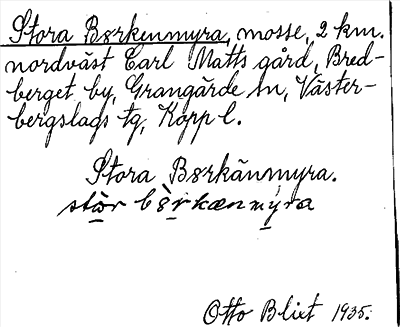 Stora Bərkenmyra, mosse, 2 km.
nordväst Carl Matts gård, Bred-
berget by, Grangärde sn, Väster-
bergslags tg, Kopp l.
Stora Bərkänmyra.
Otto Blixt 1935.